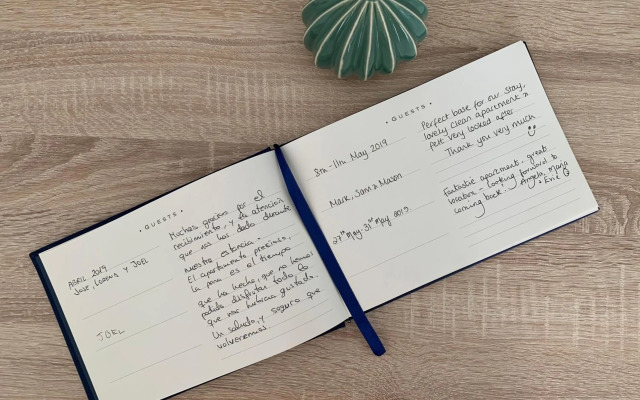 • GUESTS •
ABRIL 2019
JOSE, LORENA Y JOEL
JOEL
Muchas gracias por el
recibimiento, y la atención
que nos has dado durante
nuestra estancia.
El apartamento precioso,
la pena es el tiempo
que ha hecho, que no hemos
podido disfrutar todo lo
que nos hubiera gustado.
Un saludo, y seguro que
volveremos
• GUESTS •
8th-11th May 2019
Perfect base for our stay,
lovely clean apartment x
Felt very looked after
Thank you very much
Mark, Sam & Mason
27th May-31st May 2019
Fantastic apartment, great
location - looking forward to
coming back. Angela, Maria
+ Eric